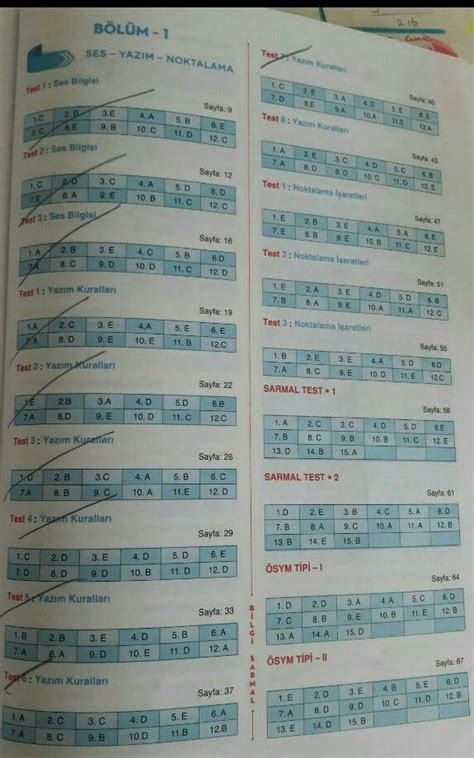 BÖLÜM - 1
SES - YAZIM - NOKTALAMA
Test 1 : Ses Bilgisi
Sayfa: 9
1.C 2.B 3.E 4.A 5.B 6.E
7.C 8.E 9.B 10.C 11.D 12.C
Test 2 : Ses Bilgisi
Sayfa: 12
1.C 2.D 3.C 4.A 5.D 6.D
7.E 8.A 9.E 10.B 11.C 12.D
Test 3 : Ses Bilgisi
Sayfa: 16
1.A 2.B 3.E 4.C 5.B 6.D
7.A 8.C 9.D 10.D 11.C 12.D
Test 1 : Yazım Kuralları
Sayfa: 19
1.A 2.C 3.E 4.A 5.E 6.E
7.A 8.D 9.D 10.E 11.B 12.C
Test 2 : Yazım Kuralları
Sayfa: 22
1.E 2.B 3.A 4.D 5.D 6.B
7.A 8.D 9.E 10.D 11.C 12.C
Test 3 : Yazım Kuralları
Sayfa: 26
1.D 2.B 3.C 4.D 5.E 6.D
7.A 8.B 9.C 10.A 11.E 12.D
Test 4 : Yazım Kuralları
Sayfa: 29
1.C 2.D 3.E 4.D 5.D 6.E
7.D 8.D 9.D 10.B 11.D 12.D
Test 5 : Yazım Kuralları
Sayfa: 33
1.B 2.B 3.E 4.D 5.B 6.A
7.A 8.A 9.D 10.E 11.D 12.D
Test 6 : Yazım Kuralları
Sayfa: 37
1.A 2.C 3.C 4.D 5.E 6.A
7.A 8.C 9.B 10.B 11.B 12.C
Test 7 : Yazım Kuralları
Sayfa: 40
1.C 2.E 3.A 4.E 5.E 6.B
7.D 8.E 9.A 10.A 11.E 12.A
Test 8 : Yazım Kuralları
Sayfa: 43
1.A 2.B 3.E 4.D 5.C 6.B
7.A 8.D 9.D 10.A 11.C 12.E
Test 1 : Noktalama İşaretleri
Sayfa: 47
1.E 2.B 3.E 4.A 5.E 6.A
7.D 8.D 9.E 10.B 11.C 12.E
Test 2 : Noktalama İşaretleri
Sayfa: 51
1.E 2.D 3.E 4.D 5.D 6.B
7.B 8.A 9.E 10.A 11.A 12.B
Test 3 : Noktalama İşaretleri
Sayfa: 55
1.B 2.B 3.E 4.A 5.D 6.D
7.A 8.D 9.D 10.D 11.E 12.C
SARMAL TEST • 1
Sayfa: 58
1.A 2.C 3.C 4.D 5.D 6.E
7.B 8.C 9.B 10.B 11.C 12.E
13.D 14.B 15.A
SARMAL TEST • 2
Sayfa: 61
1.D 2.E 3.D 4.B 5.A 6.D
7.B 8.A 9.C 10.A 11.A 12.A
13.B 14.E 15.B
ÖSYM TİPİ – I
Sayfa: 64
1.D 2.D 3.A 4.A 5.C 6.D
7.C 8.B 9.E 10.B 11.E 12.B
13.A 14.A 15.D
ÖSYM TİPİ – II
Sayfa: 67
1.E 2.D 3.E 4.B 5.E 6.B
7.A 8.D 9.B 10.E 11.A 12.D
13.E 14.D 15.B
BİLGİ SARMAL